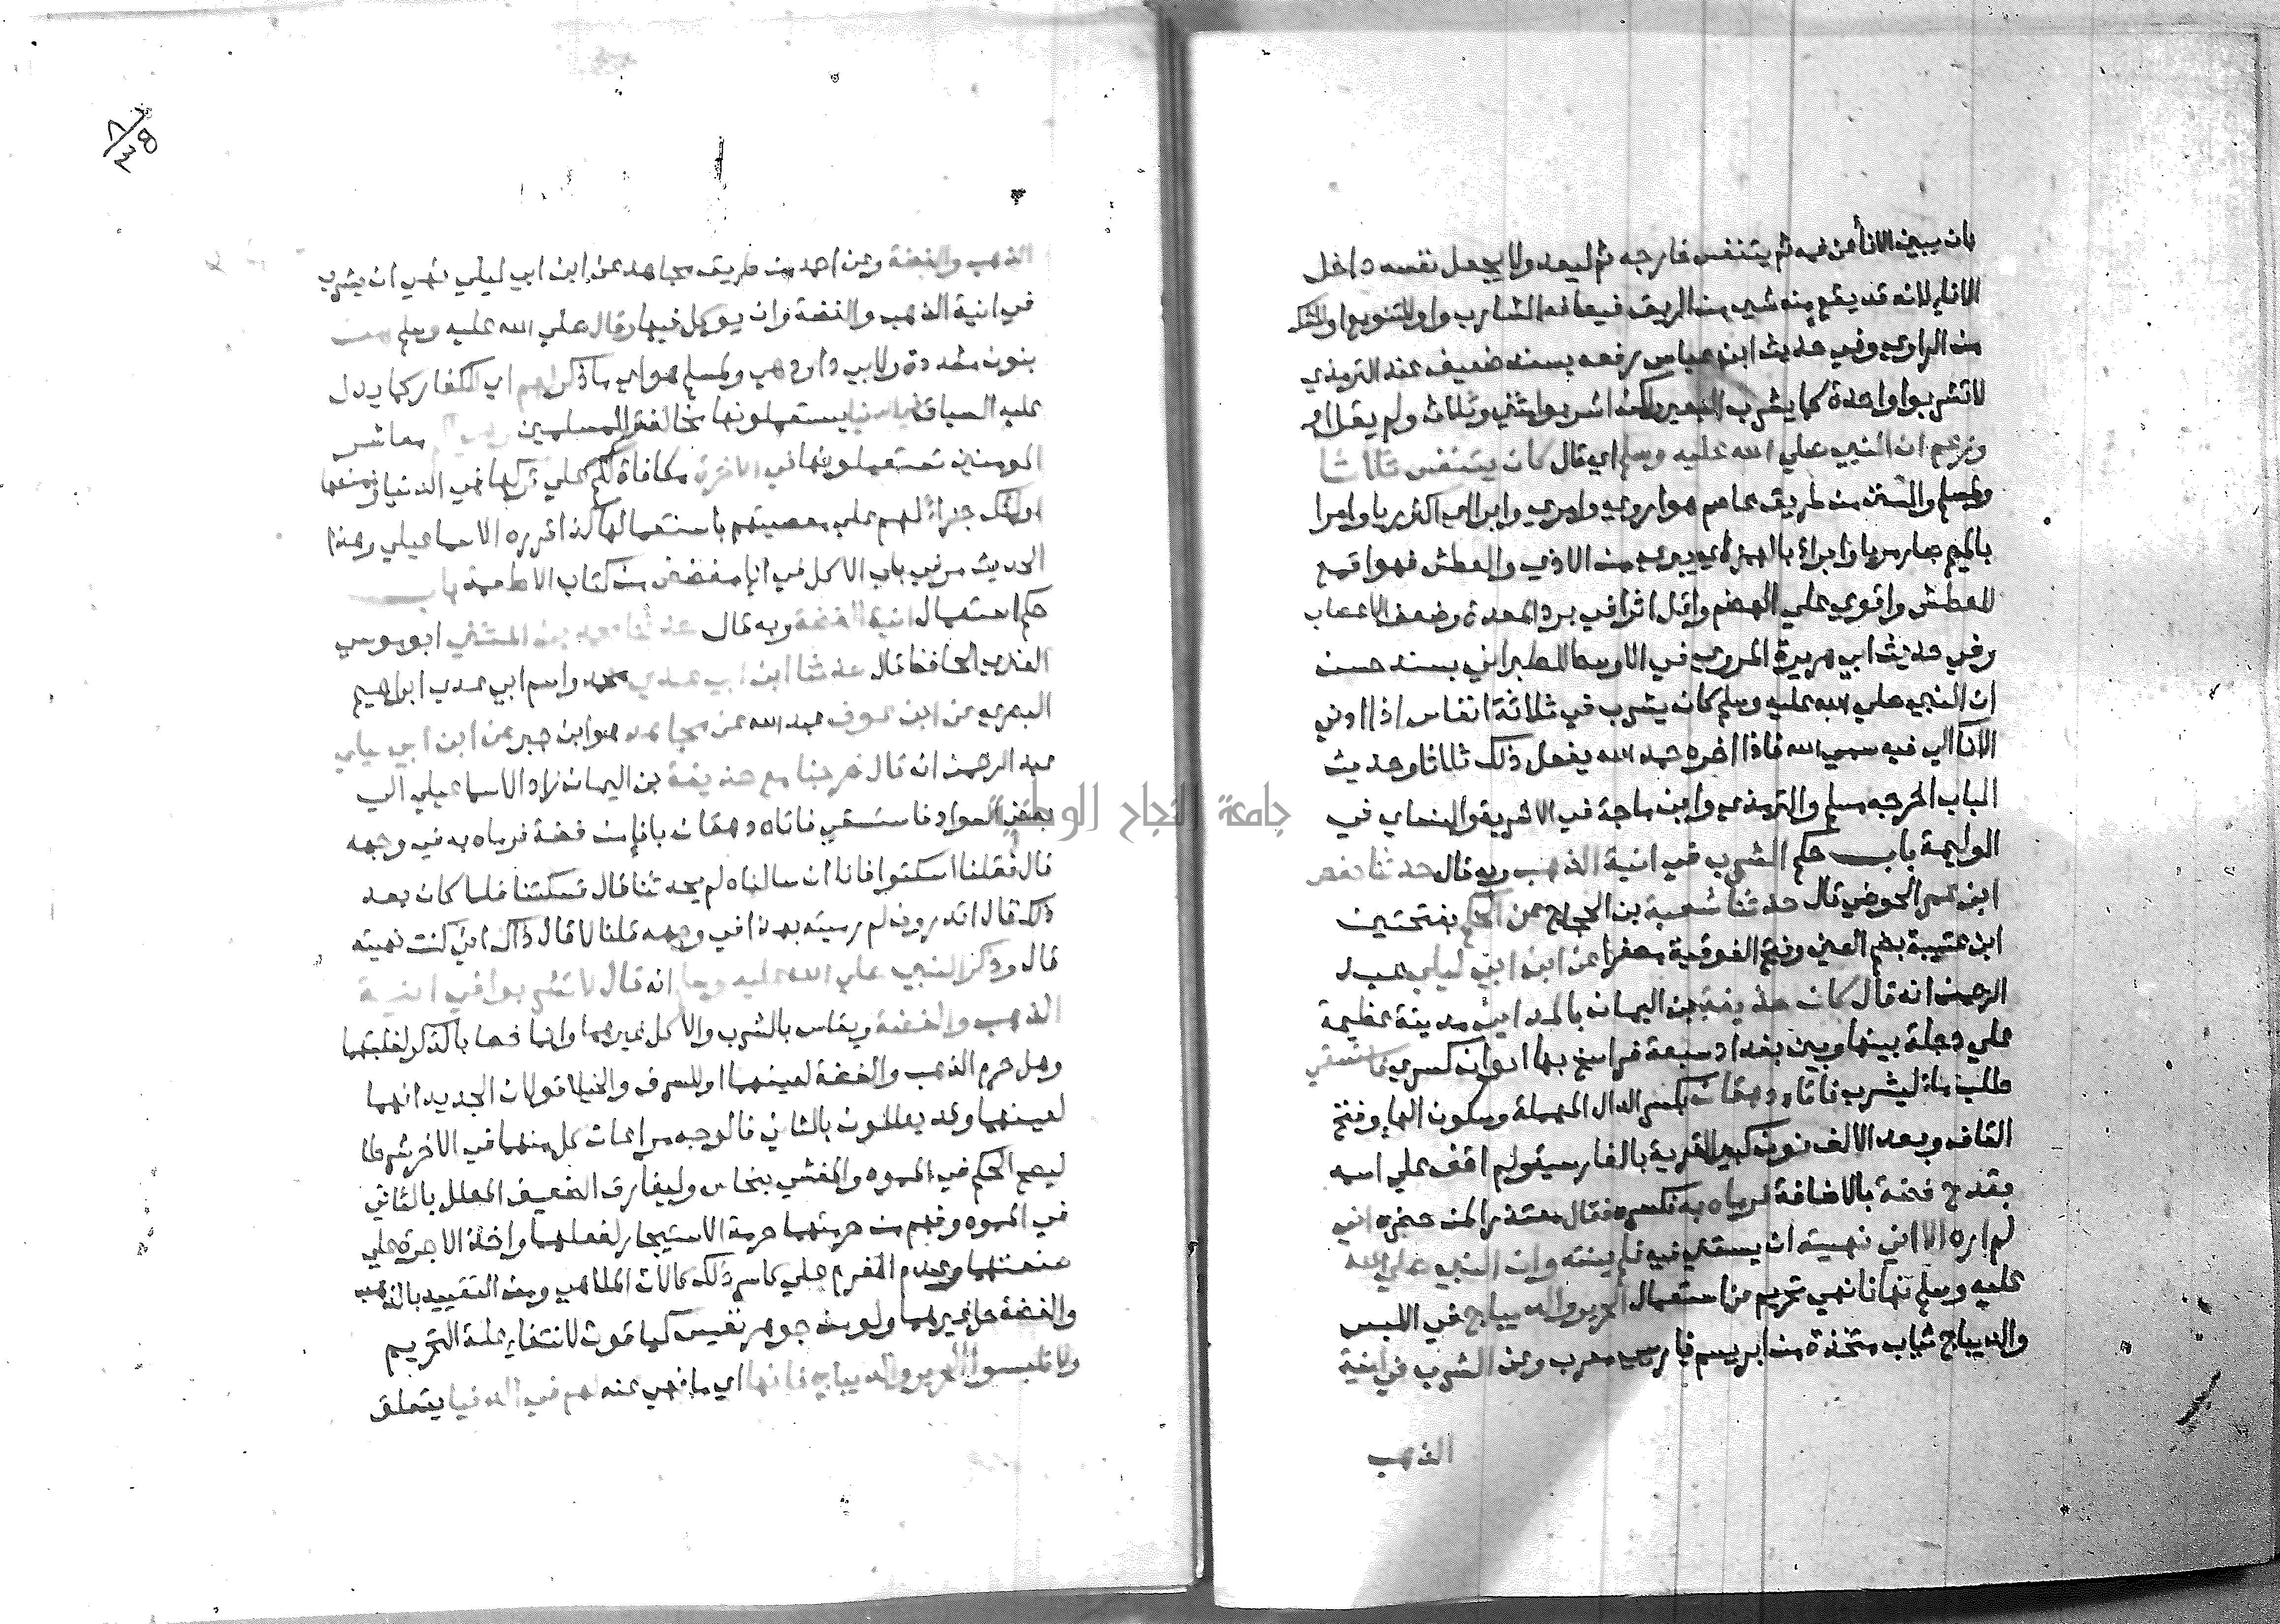 بان يبين الانا عن فيه ثم يتنفس خارجه ثم ليعد ولا يجعل نفسه داخل
الاناء لانه قد يقع منه شيء من الريق فيعافه الشارب واو للتنويع او للشك
من الراوي وفي حديث ابن عباس رفعه بسند ضعيف عند الترمذي
لا تشربوا واحدة كما يشرب البعير ولكن اشربوا مثني وثلاث ولم يقل او
وزعم ان النبي صلي الله عليه وسلم اي قال كان يتنفس ثلاثا
ولمسلم والسنن من طريق عاصم هو اروي وامري وابرا اي اكثر ريا وامرا
بالميم صار مريا وابرا بالهمز اي يبري من الاذي والعطش فهو اقمع
للعطش واقوي علي الهضم واقل اثرا في برد المعدة وضعف الاعصاب
وفي حديث ابي هريرة المروي في الاوسط للطبراني بسند حسن
ان النبي صلي الله عليه وسلم كان يشرب في ثلاثة انفاس اذا ادني
الانا الي فيه سمي الله فاذا اخره حمد الله يفعل ذلك ثلاثا وحديث
الباب اخرجه مسلم والترمذي وابن ماجة في الاشربة والنساي في
الوليمة باب حكم الشرب في انية الذهب وبه قال حدثنا حفص
ابن عمر الحوضي قال حدثنا شعبة بن الحجاج عن الحكم بفتحتين
ابن عتيبة بضم العين وفتح الفوقية مصغرا عن ابن ابي ليلي عبد
الرحمن انه قال كان حذيفة بن اليمان بالمداين مدينة عظيمة
علي دجلة بينها وبين بغداد سبعة فراسخ بها ايوان كسري فاستسقي
طلب ماء ليشرب فاتاه دهقان بكسر الدال المهملة وسكون الهاء وفتح
القاف وبعد الالف نون كبير القرية بالفارسية ولم اقف علي اسمه
بقدح فضة بالاضافة فرماه به فكسره فقال معتذرا لمن حضره اني
لم ارمه الا اني نهيته ان يسقي فيه فلم ينته وان النبي صلي الله
عليه وسلم نهانا نهي تحريم عن استعمال الحرير والديباج في اللبس
والديباج ثياب متخذة من ابريسم فارسي معرب وعن الشرب في انية
الذهب
الذهب والفضة وعن احمد من طريق مجاهد عن ابن ابي ليلي نهي ان يشرب
في انية الذهب والفضة وان يوكل فيها وقال صلي الله عليه وسلم هن
بنون مشددة ولابي داود هي ولمسلم هو اي ما ذكر لهم اي للكفار كما يدل
عليه السياق في الدنيا يستعملونها مخالفة للمسلمين معاشر
المومنين تستعملونها في الاخرة مكافاة لكم علي تركها في الدنيا ويمنعها
اوليك جزاء لهم علي معصيتهم باستعمالها كذا قرره الاسماعيلي وهذا
الحديث مر في باب الاكل في اناء مفضض من كتاب الاطعمة باب
حكم استعمال انية الفضة وبه قال حدثنا محمد بن المثني ابو موسي
العنزي الحافظ قال حدثنا ابن ابي عدي محمد واسم ابي عدي ابراهيم
البصري عن ابن عوف عبد الله عن مجاهد هو ابن جبر عن ابن ابي ليلي
عبد الرحمن انه قال خرجنا مع حذيفة بن اليمان زاد الاسماعيلي الي
بعض السواد فاستسقي فاتاه دهقان باناء من فضة فرماه به في وجهه
قال فقلنا اسكتوا فانا ان سالناه لم يحدثنا قال فسكتنا فلما كان بعد
ذلك قال اتدرون لم رميته بهذا في وجهه قلنا لا قال ذاك اني كنت نهيته
قال وذكر النبي صلي الله عليه وسلم انه قال لا تشربوا في انية
الذهب والفضة ويقاس بالشرب والاكل غيرهما وانما خصا بالذكر لغلبتهما
وهل حرم الذهب والفضة لعينهما او للسرف والخيلا قولان الجديد انهما
لعينهما وقد يعللون بالثاني فالوجه مراعات كل منهما في الاخر شرطا
ليصح الحكم في المموه والمغشي بنحاس وليفارق الضعيف المعلل بالثاني
في المموه وفهم من حرمتهما حرمة الاستيجار لفعلهما واخذ الاجرة علي
صنعتهما وعدم الغرم علي كاسر ذلك كالات الملاهي ومن التقييد بالذهب
والفضة حل غيرهما ولو من جوهر نفيس كياقوت لانتفاء علة التحريم
ولا تلبسوا الحرير والديباج فانها اي ما نهي عنه لهم في الدنيا يتعلق
جامعة النجاح الوطنية